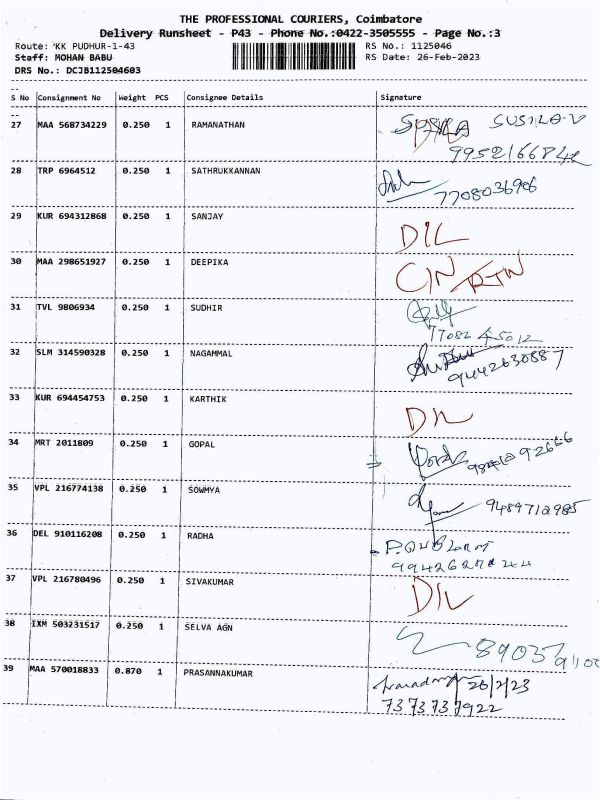 THE PROFESSIONAL COURIERS, Coimbatore
Delivery Runsheet - P43 - Phone No.:0422-3505555 - Page No.:3
Route: KK PUDHUR-1-43 RS No.: 1125046
Staff: MOHAN BABU RS Date: 26-Feb-2023
DRS No.: DCJB112504603
S No Consignment No Weight PCS Consignee Details Signature
27 MAA 568734229 0.250 1 RAMANATHAN SUSILA.V
28 TRP 6964512 0.250 1 SATHRUKKANNAN 7708036906
29 KUR 694312868 0.250 1 SANJAY D/L
30 MAA 298651927 0.250 1 DEEPIKA C/N RTN
31 TVL 9806934 0.250 1 SUDHIR 77082 45012
32 SLM 314590328 0.250 1 NAGAMMAL 9442630887
33 KUR 694454753 0.250 1 KARTHIK D/L
34 MRT 2011809 0.250 1 GOPAL
35 VPL 216774138 0.250 1 SOWMYA 9489712985
36 DEL 910116208 0.250 1 RADHA
37 VPL 216780496 0.250 1 SIVAKUMAR D/L
38 IXM 503231517 0.250 1 SELVA AGN
39 MAA 570018833 0.870 1 PRASANNAKUMAR 26/2/23
73 73 73 7922